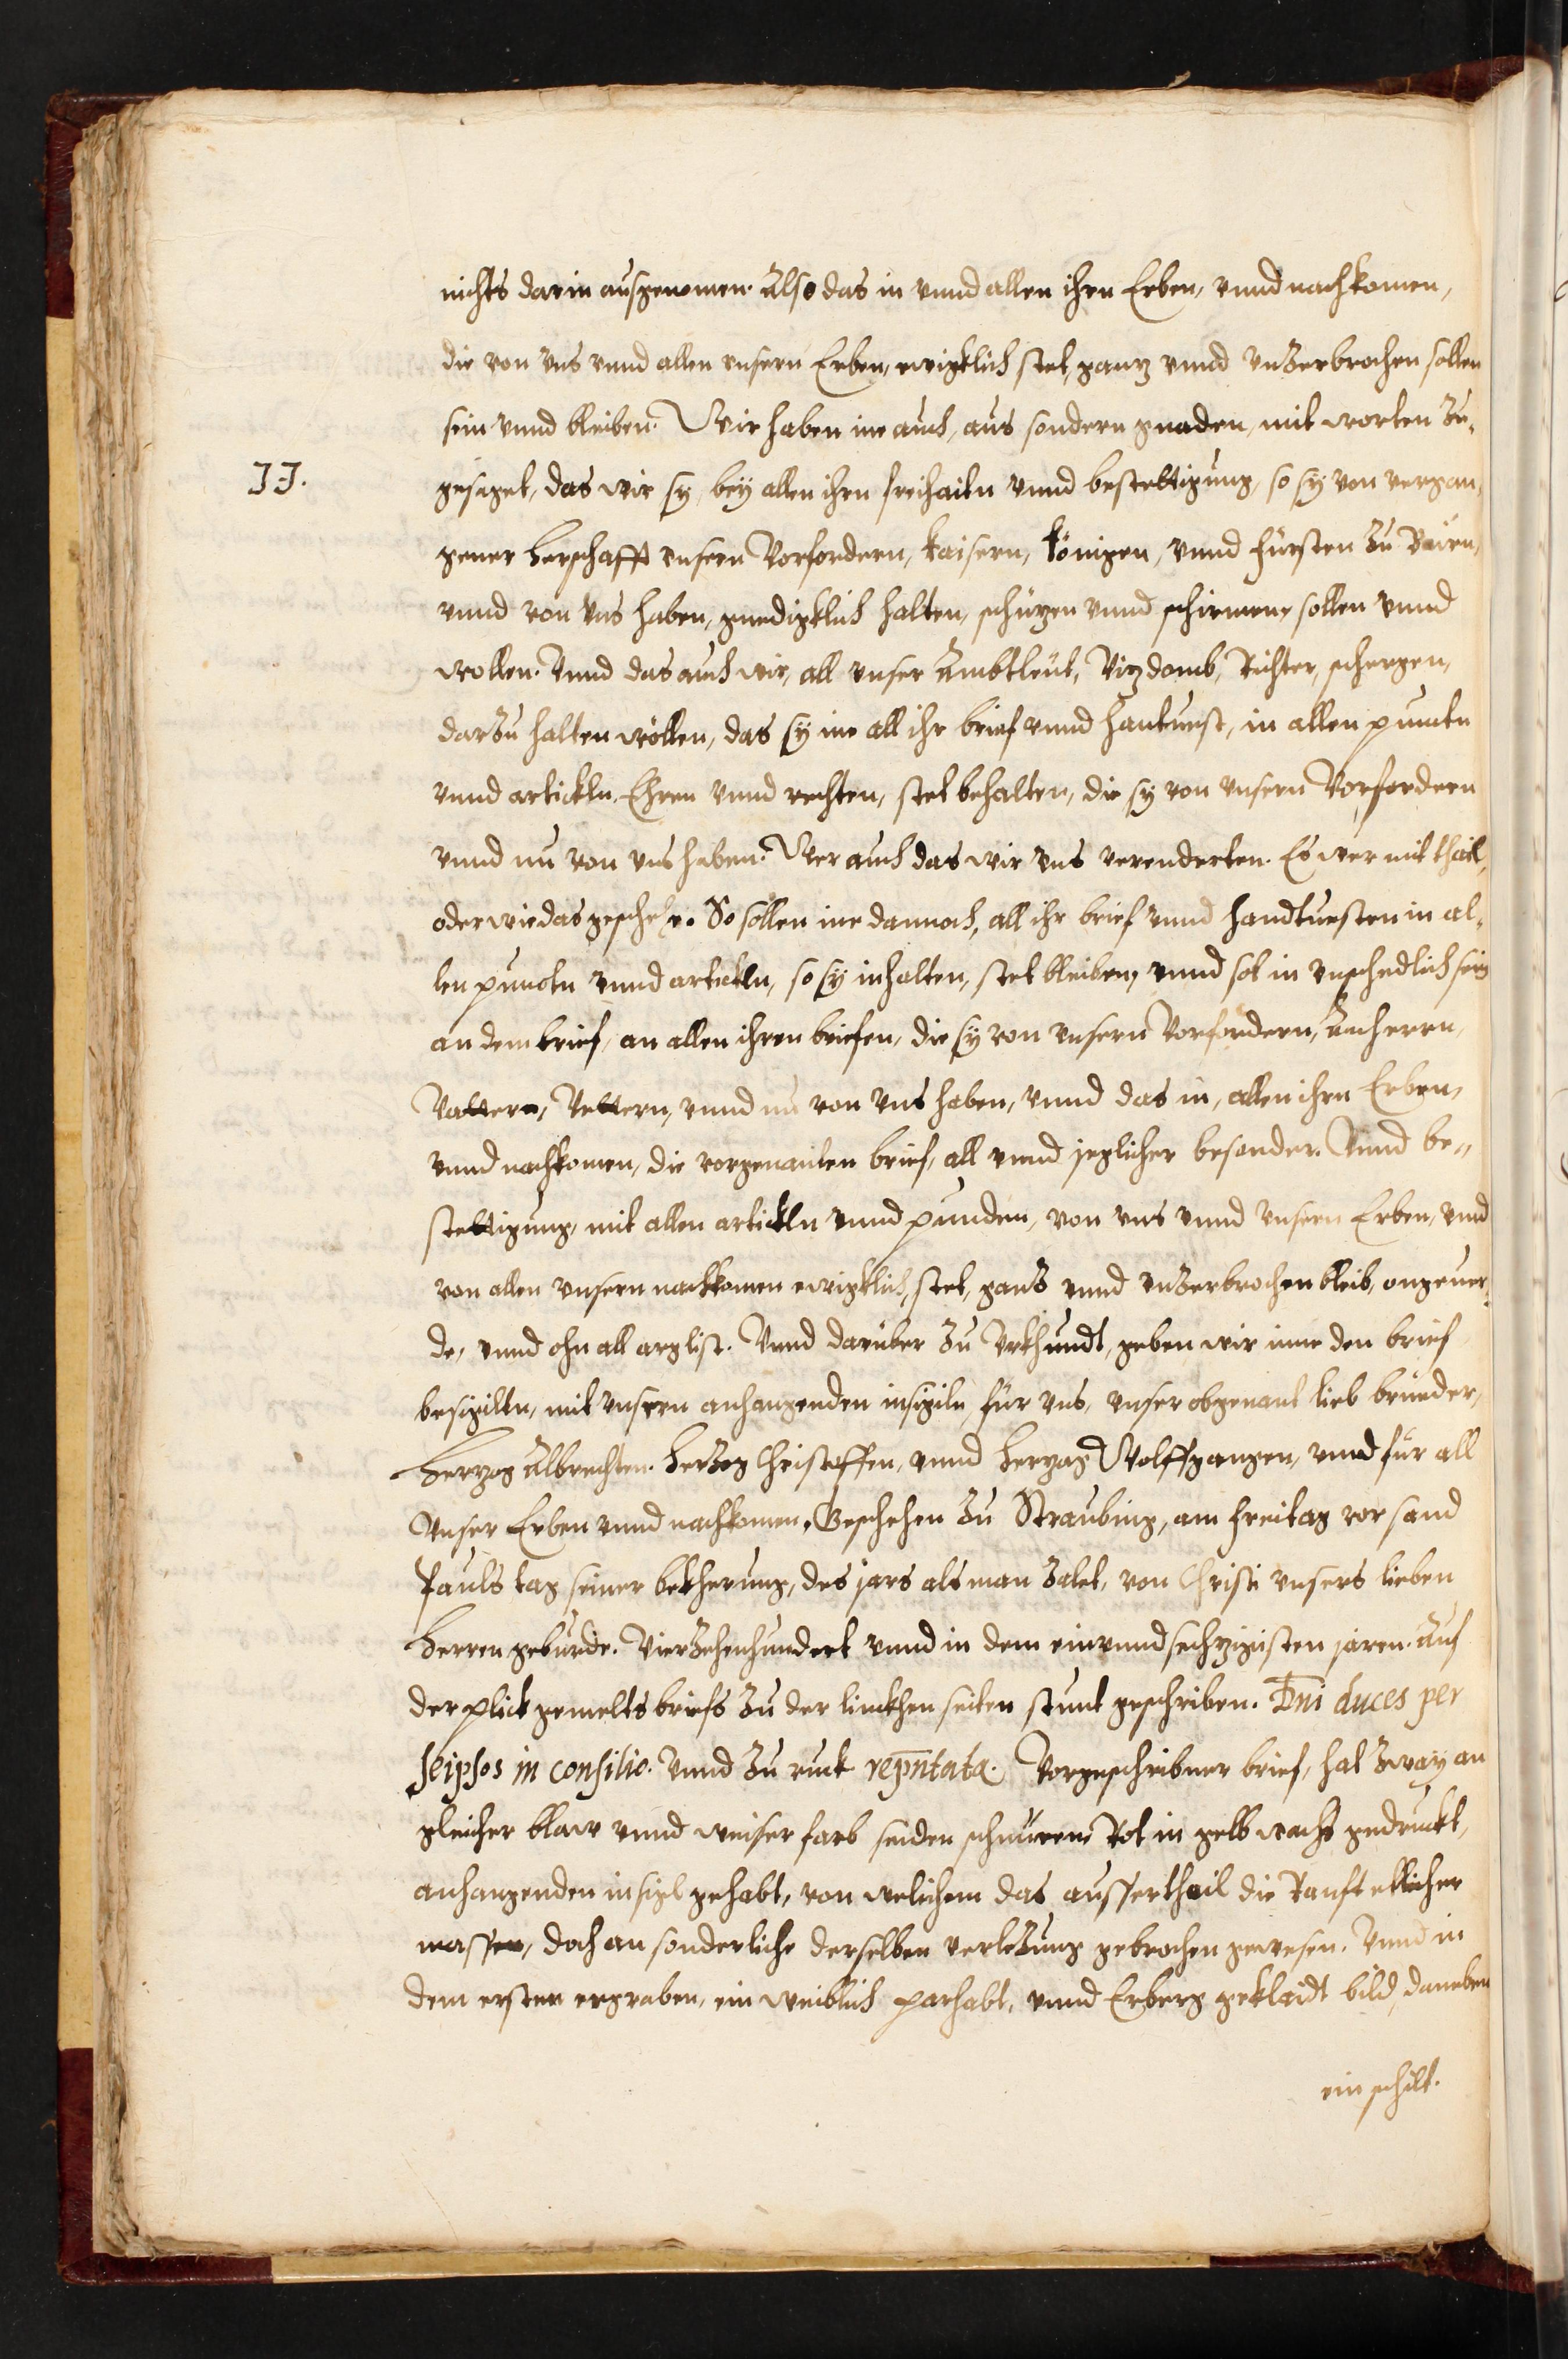 nichts darin ausgenomen. Also das in vnnd allen ihrn Erben, vnnd nachkomen,
die von vns vnnd allen vnsern Erben, ewigklich stet, ganz vnnd vnzerbrochen sollen
sein vnnd bleiben. Wir haben ine auch, aus sondern gnaden, mit worten zu-
JJ.
gesaget, das wir sy, bey allen ihrn freihaitn vnnd bestettigung, so sy von vergan-
gener Herschafft vnsern Vorfordern, kaisern, königen, vnnd fürsten zu Bairn,
vnnd von vns haben, gnedigklich halten, schüzen vnnd schirmen, sollen vnnd
wollen. Vnnd das auch wir, all vnser Ambtleut, Vizdomb, Richter, schergen,
darzu halten wöllen, das sy ine all ihr brief vnnd hantuest, in allen punctn
vnnd artickln, Ehren vnnd rechten, stet behalten, die sy von vnsern Vorfordern
vnnd nu von vns haben. Wer auch das wir vns verenderten. Es wer mit thail,
oder wie das geschehe. So sollen ine dannoch, all ihr brief vnnd handtuesten in al-
len punctn vnnd artickln, so sy inhalten, stet bleiben, vnnd sol in vnschedlich sein
an dem brief, an allen ihren briefen, die sy von vnsern Vorfordern, Anherrn,
Vattern, Vettern, vnnd nu von vns haben, vnnd das in, allen ihrn Erben,
vnnd nachkomen, die vorgenanten brief, all vnnd jeglicher besonder. Vnnd be-
stettigung, mit allen artickln vnnd punden, von vns vnnd vnsern Erben, vnd
von allen vnsern nachkomen ewigklich, stet, ganz vnnd vnzerbrochen bleib, ongeuer-
de, vnnd ohn all arglist. Vnnd darüber zu Vrkhundt, geben wir inne den brief
besigiltn, mit vnsern anhangenden insigiln, für vns, vnser obgenant lieb brüeder,
Herzog Albrechten. Herzog Christoffen, vnnd Herzog Wolffgangen, vnnd für all
Vnser Erben vnnd nachkomen. Geschehen zu Straubing, am freitag vor sand
Pauls tag seiner bekherung, des jars als man zalet, von Christi vnsers lieben
Herren geburde. Vierzehenhundert vnnd in dem einvnndsechzigisten jaren. Auf
der plick gemelts briefs zu der linckhen seiten stunt geschriben. Dni duces per
seipsos in consilio. Vnnd zu ruck repntata. Vorgeschribner brief, hat zway an
gleicher blaw vnnd weiser farb seiden schnüren, Rot in gelb wachs gedruckt,
anhangenden insigl gehabt, von welichem das aussertheil die Ranft etlicher
massen, doch an sonderliche derselben verlezung gebrochen gewesen. Vnnd in
dem ersten ergraben, ein weiblich parhabt, vnnd Erberg geklaidt bild, daneben
ein schilt.